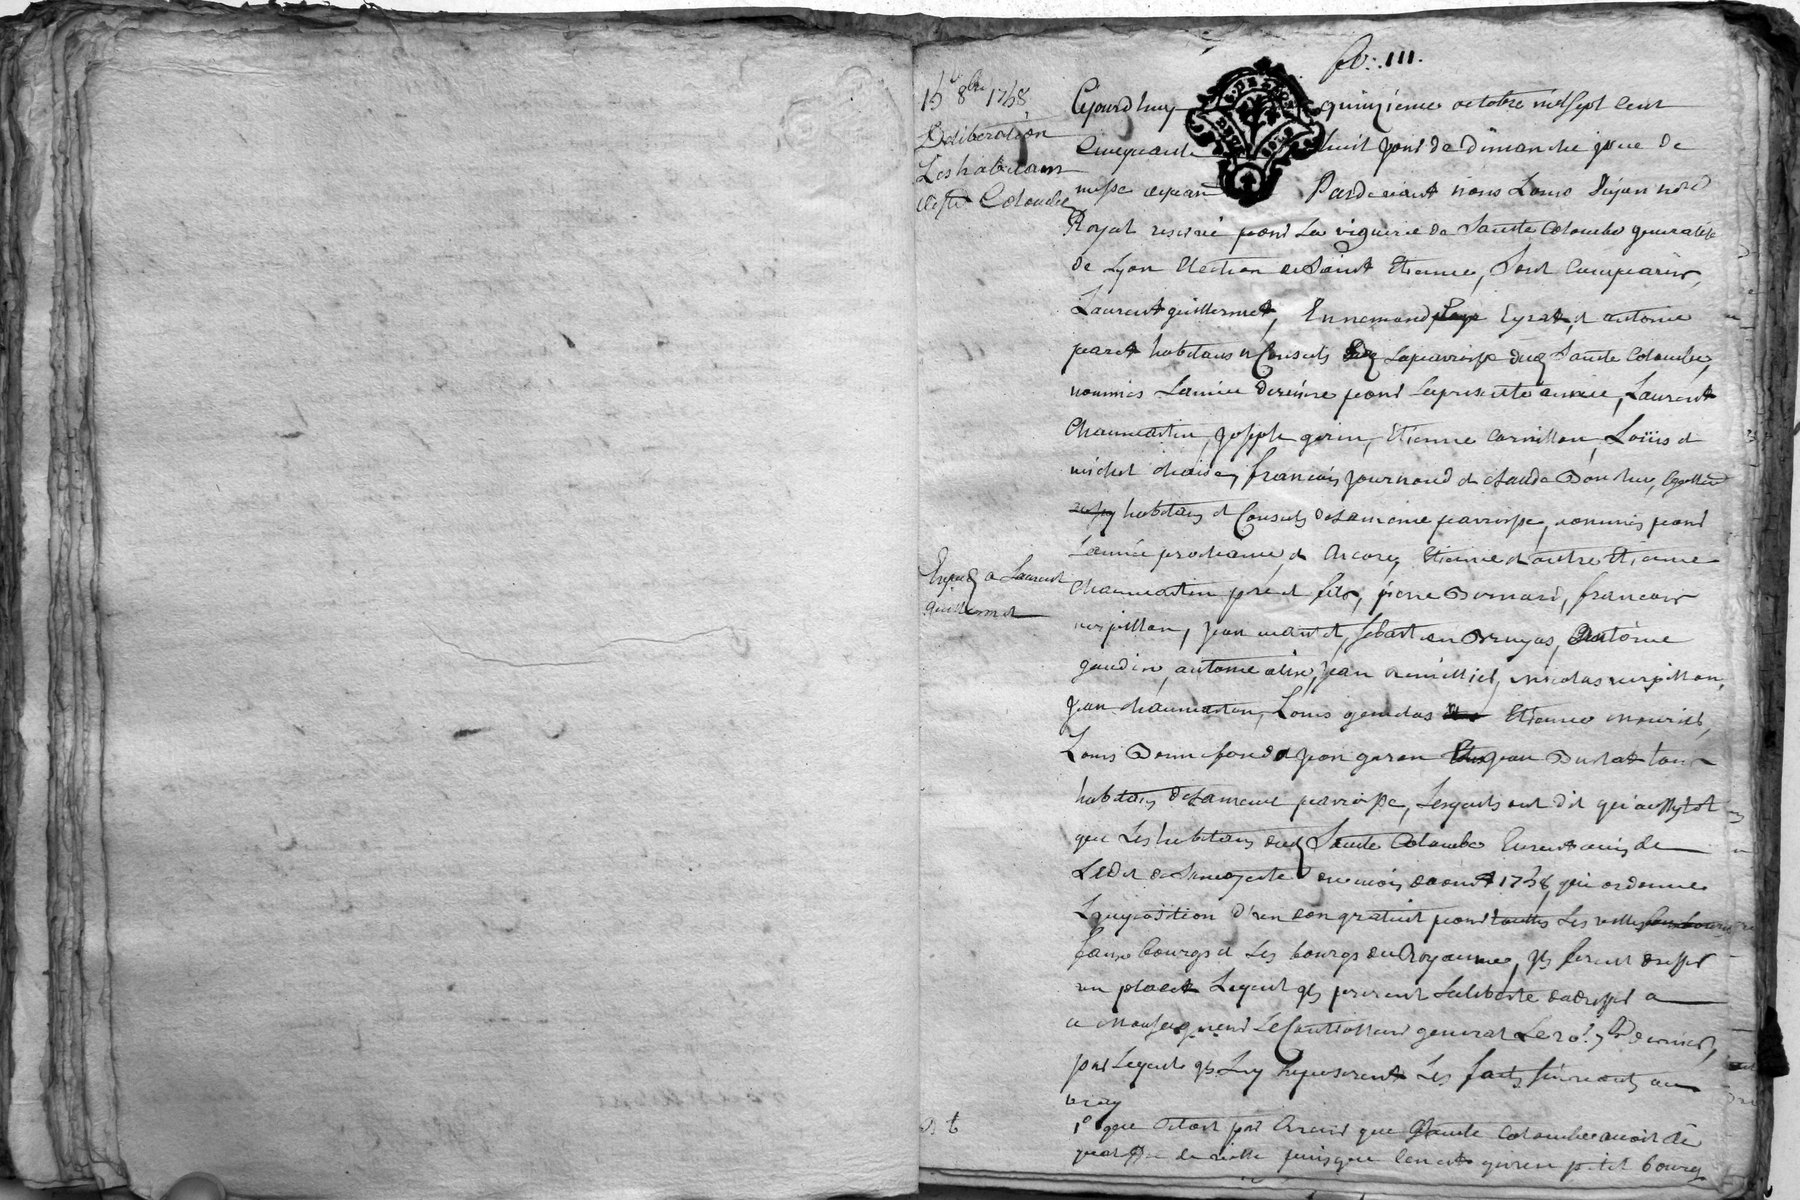 fo: 111.
15e 8bre 1758
Deliberation
Les habitans
de ste Colombe
Cejourdhuy quinzieme octobre mil sept cent
Cinquante huit jour de dimanche jssue de
messe Pardevant nous Louis nore
Royal reservé pour la viguerie de Sainte Colombe generalité
de Lyon Election de Saint Etienne, sont comparus,
Laurent guillermet, Ennemond Eyrat, et antoine
paret habitans et Consuls Laparroisse dud Sainte Colombe,
nommés Lannée derniere pour la presente année, Laurent
Chaumartin, joseph garin, Etienne Cornillon, Loüis et
michel chaise, françois journoud et claude
habitans et Consuls de Lameme parroisse, nommés pour
Lannée prochaine, et Encore, Etienne et autre Etienne
Chaumartin pere et fils, pierre Bernard, francois
jean sebastien Bruyas, Antoine
gaudin, antoine jean nicolas
jean chaumartin, Louis Etienne
Louis Bonnefond et jean garon jean tous
habitans de Lameme parroisse, Lesquels ont dit qu'aussytot
que Les habitans dud Sainte Colombe Eurent avis de
Ledit de Sa majesté du mois daoust 1758, qui ordonne
L'imposition d'un don gratuit pour touttes Les villes
faux bourgs et Les bourgs du Royaume, jls firent dresser
un placet Lequel jls prirent La liberté dadresser a
a Monseigneur Le Controlleur general Le dernier,
par Lequel jls Luy Exposerent Les faits suivants au
vray
1o que Cetoit par Erreur que Sainte Colombe avoit été
de ville puisque Ce n'est qu'un petit bourg
Exped a Laurent
guillermet